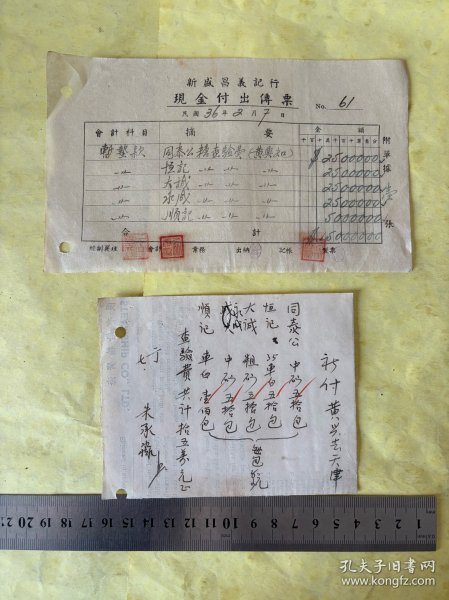 新盛昌義記行
現金付出傳票
No. 61
民國36年2月7日
會計科目 摘要 金額
千百十萬千百十元角分
暫墊款 同泰公糖查驗費(黃東初) $2500000
〃 恒記 〃 〃 2500000
〃 大誠 〃 〃 2500000
〃 永成 〃 〃 2500000
〃 順記 〃 〃 5000000
合計 $15000000
附單據 張
經副襄理 會計 業務 出納 記帳 製票
付黃吳去天津
同泰公 中砂五拾包
恒記 35車白五拾包
大誠 粗砂五拾包
永成 中砂五拾包
順記 車白壹佰包
每包
查驗費共計拾五萬元正
朱承
孔夫子旧书网
book.kongfz.com